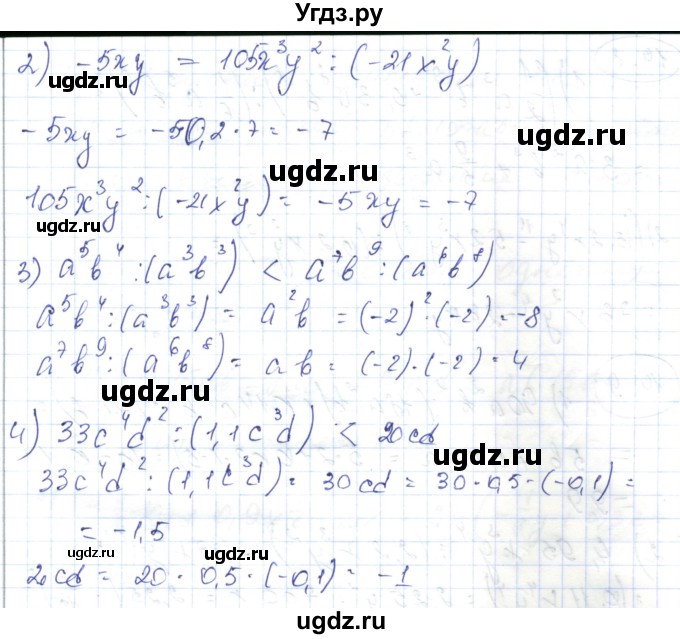 Угдз.ру
2) -5xy = 105x³y² : (-21x²y)
ugdz.ru
-5xy = -5·0,2·7 = -7
ugdz.ru
ugdz.ru
105x³y² : (-21x²y) = -5xy = -7
ugdz.ru
ugdz.ru
3) a⁵b⁴ : (a³b³) < a⁷b⁹ : (a⁶b⁸)
a⁵b⁴ : (a³b³) = a²b = (-2)²·(-2) = -8
ugdz.ru
a⁷b⁹ : (a⁶b⁸) = ab = (-2)·(-2) = 4
ugdz.ru
ugdz.ru
4) 33c⁴d² : (1,1c³d) < 20cd
ugdz.ru
33c⁴d² : (1,1c³d) = 30cd = 30·0,5·(-0,1) =
= -1,5
ugdz.ru
ugdz.ru
20cd = 20·0,5·(-0,1) = -1
ugdz.ru
ugdz.ru